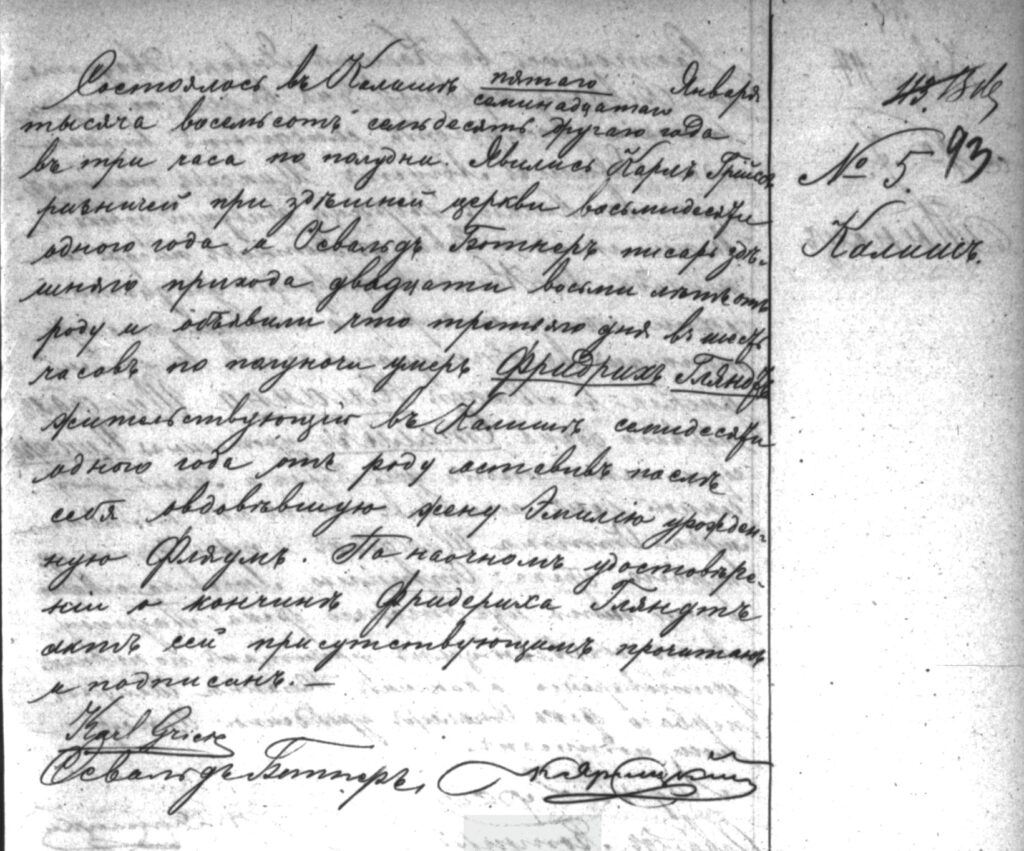 Состоялось въ Калишѣ пятаго Января
семнадцатаго
тысяча восемьсотъ семьдесятъ другаго года
въ три часа по полудни. Явились Карлъ
ризничей при здѣшней церкви восьмидесяти
одного года и Освальдъ Ботнеръ писарь здѣ-
шняго прихода двадцати восьми лѣтъ отъ
роду и объявили что третьяго дня въ шесть
часовъ по полуночи умеръ Фридрихъ Гляндтъ
жительствующій въ Калишѣ семидесяти
одного года отъ роду оставивъ послѣ
себя овдовѣвшую жену Эмилію урожден-
ную Фляумъ. По наочномъ удостовѣре-
ніи о кончинѣ Фридериха Гляндтъ
актъ сей присутствующимъ прочитанъ
и подписанъ. —
Karl
Освальдъ Ботнеръ,
№ 5.
93.
Калишъ.